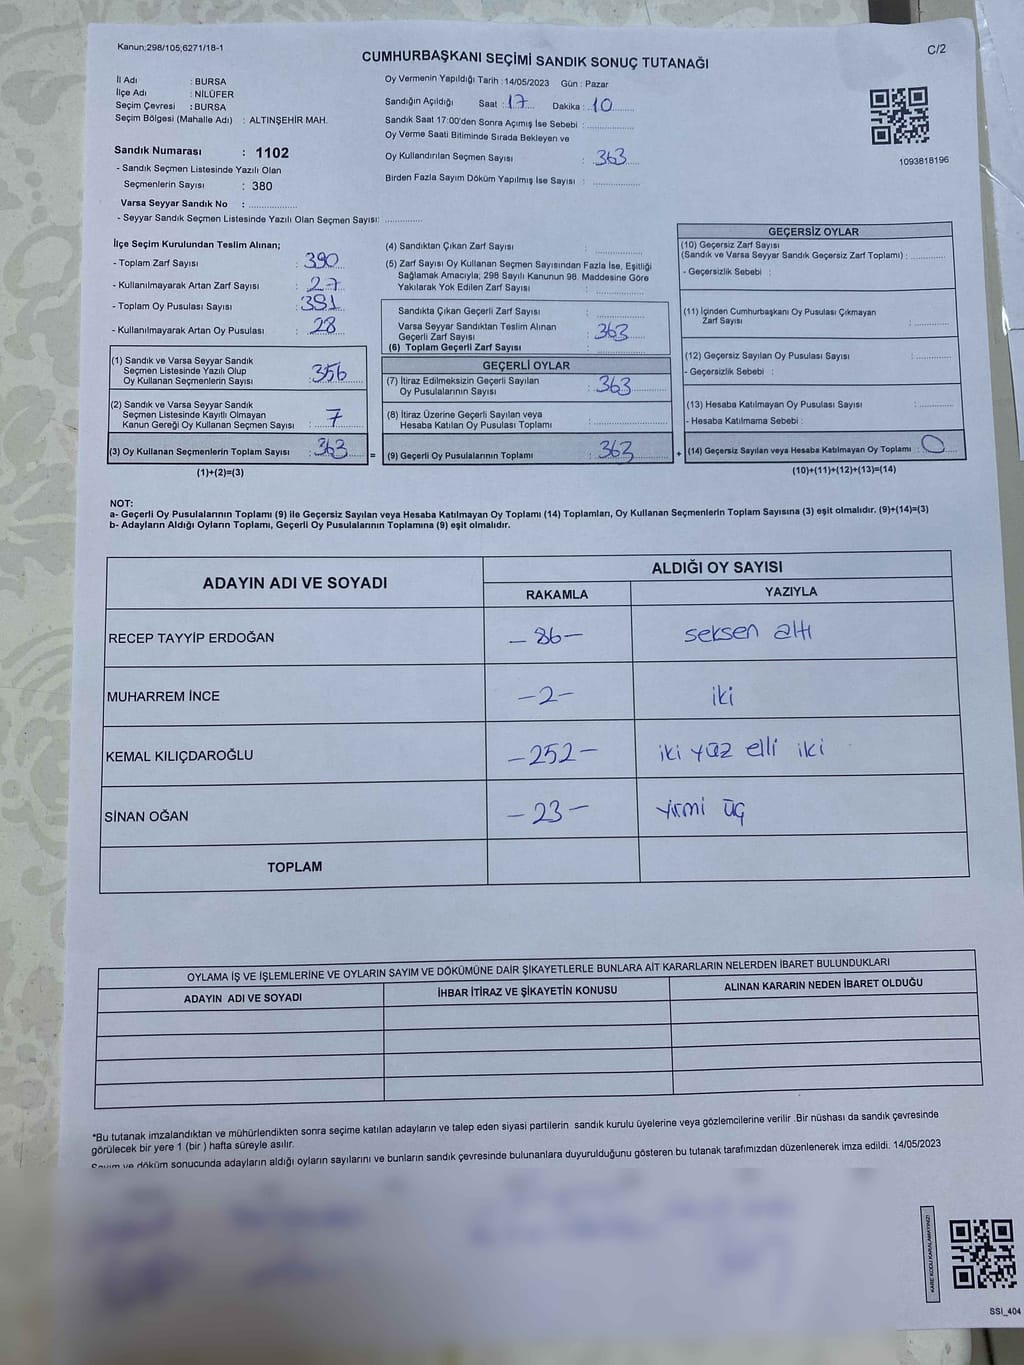 Kanun;298/105,6271/18-1
C/2
CUMHURBAŞKANI SEÇİMİ SANDIK SONUÇ TUTANAĞI
İl Adı : BURSA
İlçe Adı : NİLÜFER
Seçim Çevresi : BURSA
Seçim Bölgesi (Mahalle Adı) : ALTINŞEHİR MAH.
Sandık Numarası : 1102
- Sandık Seçmen Listesinde Yazılı Olan
Seçmenlerin Sayısı : 380
Varsa Seyyar Sandık No : ..............
- Seyyar Sandık Seçmen Listesinde Yazılı Olan Seçmen Sayısı: ............
Oy Vermenin Yapıldığı Tarih : 14/05/2023 Gün : Pazar
Sandığın Açıldığı Saat : 17 Dakika : 10
Sandık Saat 17:00'den Sonra Açımış İse Sebebi : ..............
Oy Verme Saati Bitiminde Sırada Bekleyen ve
Oy Kullandırılan Seçmen Sayısı : 363
Birden Fazla Sayım Döküm Yapılmış İse Sayısı : ..............
1093818196
İlçe Seçim Kurulundan Teslim Alınan;
- Toplam Zarf Sayısı : 390
- Kullanılmayarak Artan Zarf Sayısı : 27
- Toplam Oy Pusulası Sayısı : 391
- Kullanılmayarak Artan Oy Pusulası : 28
(1) Sandık ve Varsa Seyyar Sandık
Seçmen Listesinde Yazılı Olup
Oy Kullanan Seçmenlerin Sayısı : 356
(2) Sandık ve Varsa Seyyar Sandık
Seçmen Listesinde Kayıtlı Olmayan
Kanun Gereği Oy Kullanan Seçmen Sayısı : 7
(3) Oy Kullanan Seçmenlerin Toplam Sayısı : 363 =
(1)+(2)=(3)
(4) Sandıktan Çıkan Zarf Sayısı : ..............
(5) Zarf Sayısı Oy Kullanan Seçmen Sayısından Fazla İse, Eşitliği
Sağlamak Amacıyla; 298 Sayılı Kanunun 98. Maddesine Göre
Yakılarak Yok Edilen Zarf Sayısı : ..............
Sandıkta Çıkan Geçerli Zarf Sayısı : ..............
Varsa Seyyar Sandıktan Teslim Alınan
Geçerli Zarf Sayısı : 363
(6) Toplam Geçerli Zarf Sayısı : ..............
GEÇERLİ OYLAR
(7) İtiraz Edilmeksizin Geçerli Sayılan
Oy Pusulalarının Sayısı : 363
(8) İtiraz Üzerine Geçerli Sayılan veya
Hesaba Katılan Oy Pusulası Toplamı : ..............
(9) Geçerli Oy Pusulalarının Toplamı : 363 +
GEÇERSİZ OYLAR
(10) Geçersiz Zarf Sayısı
(Sandık ve Varsa Seyyar Sandık Geçersiz Zarf Toplamı) : ............
- Geçersizlik Sebebi :
(11) İçinden Cumhurbaşkanı Oy Pusulası Çıkmayan
Zarf Sayısı : ............
(12) Geçersiz Sayılan Oy Pusulası Sayısı : ............
- Geçersizlik Sebebi :
(13) Hesaba Katılmayan Oy Pusulası Sayısı : ............
- Hesaba Katılmama Sebebi :
(14) Geçersiz Sayılan veya Hesaba Katılmayan Oy Toplamı : 0
(10)+(11)+(12)+(13)=(14)
NOT:
a- Geçerli Oy Pusulalarının Toplamı (9) ile Geçersiz Sayılan veya Hesaba Katılmayan Oy Toplamı (14) Toplamları, Oy Kullanan Seçmenlerin Toplam Sayısına (3) eşit olmalıdır. (9)+(14)=(3)
b- Adayların Aldığı Oyların Toplamı, Geçerli Oy Pusulalarının Toplamına (9) eşit olmalıdır.
ADAYIN ADI VE SOYADI
ALDIĞI OY SAYISI
RAKAMLA YAZIYLA
RECEP TAYYİP ERDOĞAN - 86 - seksen altı
MUHARREM İNCE - 2 - iki
KEMAL KILIÇDAROĞLU - 252 - iki yüz elli iki
SİNAN OĞAN - 23 - yirmi üç
TOPLAM
OYLAMA İŞ VE İŞLEMLERİNE VE OYLARIN SAYIM VE DÖKÜMÜNE DAİR ŞİKAYETLERLE BUNLARA AİT KARARLARIN NELERDEN İBARET BULUNDUKLARI
ADAYIN ADI VE SOYADI İHBAR İTİRAZ VE ŞİKAYETİN KONUSU ALINAN KARARIN NEDEN İBARET OLDUĞU
*Bu tutanak imzalandıktan ve mühürlendikten sonra seçime katılan adayların ve talep eden siyasi partilerin sandık kurulu üyelerine veya gözlemcilerine verilir .Bir nüshası da sandık çevresinde
görülecek bir yere 1 (bir ) hafta süreyle asılır.
Sayım ve döküm sonucunda adayların aldığı oyların sayılarını ve bunların sandık çevresinde bulunanlara duyurulduğunu gösteren bu tutanak tarafımızdan düzenlenerek imza edildi. 14/05/2023
KARE KODU KARALAMAYINIZ!
SSI_404